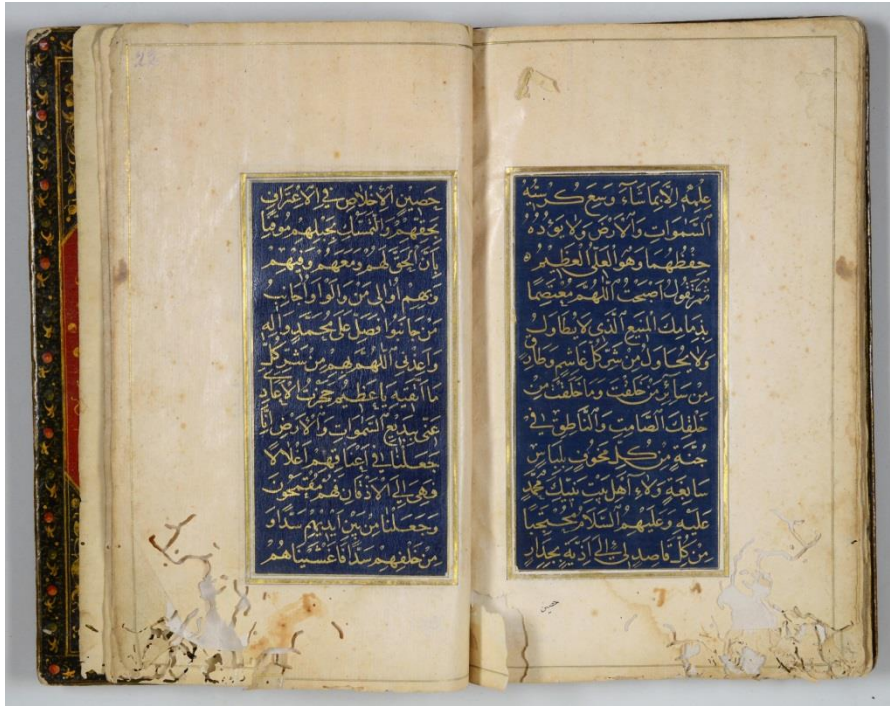 عِلْمِهِ اِلَّا بِمَا شَآءَ وَسِعَ كُرْسِيُّهُ
السَّمٰوَاتِ وَالْاَرْضَ وَلَا يَؤُدُهُ
حِفْظُهُمَا وَهُوَ الْعَلِيُّ الْعَظِيْمُ
ثُمَّ تَقُولُ اَصْبَحْتُ اَللّٰهُمَّ مُعْتَصِمًا
بِذِمَامِكَ الْمَنِيْعِ الَّذِي لَا يُطَاوَلُ
وَلَا يُحَاوَلُ مِنْ شَرِّ كُلِّ غَاشِمٍ وَطَارِقٍ
مِنْ سَائِرِ مَنْ خَلَقْتَ وَمَا خَلَقْتَ مِنْ
خَلْقِكَ الصَّامِتِ وَالنَّاطِقِ فِي
جُنَّةٍ مِنْ كُلِّ مَخُوفٍ بِلِبَاسٍ
سَابِغَةٍ وَلَاءِ اَهْلِ بَيْتِ نَبِيِّكَ مُحَمَّدٍ
عَلَيْهِ وَعَلَيْهِمُ السَّلَامُ مُحْتَجِبًا
مِنْ كُلِّ قَاصِدٍ لِي اِلٰى اَذِيَّةٍ بِجِدَارٍ
حَصِيْنِ الْاِخْلَاصِ فِي الْاِعْتِرَافِ
بِحَقِّهِمْ وَالتَّمَسُّكِ بِحَبْلِهِمْ مُوقِنًا
بِاَنَّ الْحَقَّ لَهُمْ وَمَعَهُمْ وَفِيْهِمْ
وَبِهِمْ اُوَالِي مَنْ وَالَوْا وَاُجَانِبُ
مَنْ جَانَبُوا فَصَلِّ عَلٰى مُحَمَّدٍ وَاٰلِهِ
وَاَعِذْنِي اَللّٰهُمَّ بِهِمْ مِنْ شَرِّ كُلِّ
مَا اَتَّقِيْهِ يَا عَظِيْمُ حَجَزْتُ الْاَعَادِيَ
عَنِّي بِبَدِيْعِ السَّمٰوَاتِ وَالْاَرْضِ اِنَّا
جَعَلْنَا فِي اَعْنَاقِهِمْ اَغْلَالًا
فَهِيَ اِلَى الْاَذْقَانِ فَهُمْ مُقْمَحُونَ
وَجَعَلْنَا مِنْ بَيْنِ اَيْدِيْهِمْ سَدًّا وَ
مِنْ خَلْفِهِمْ سَدًّا فَاَغْشَيْنَاهُمْ